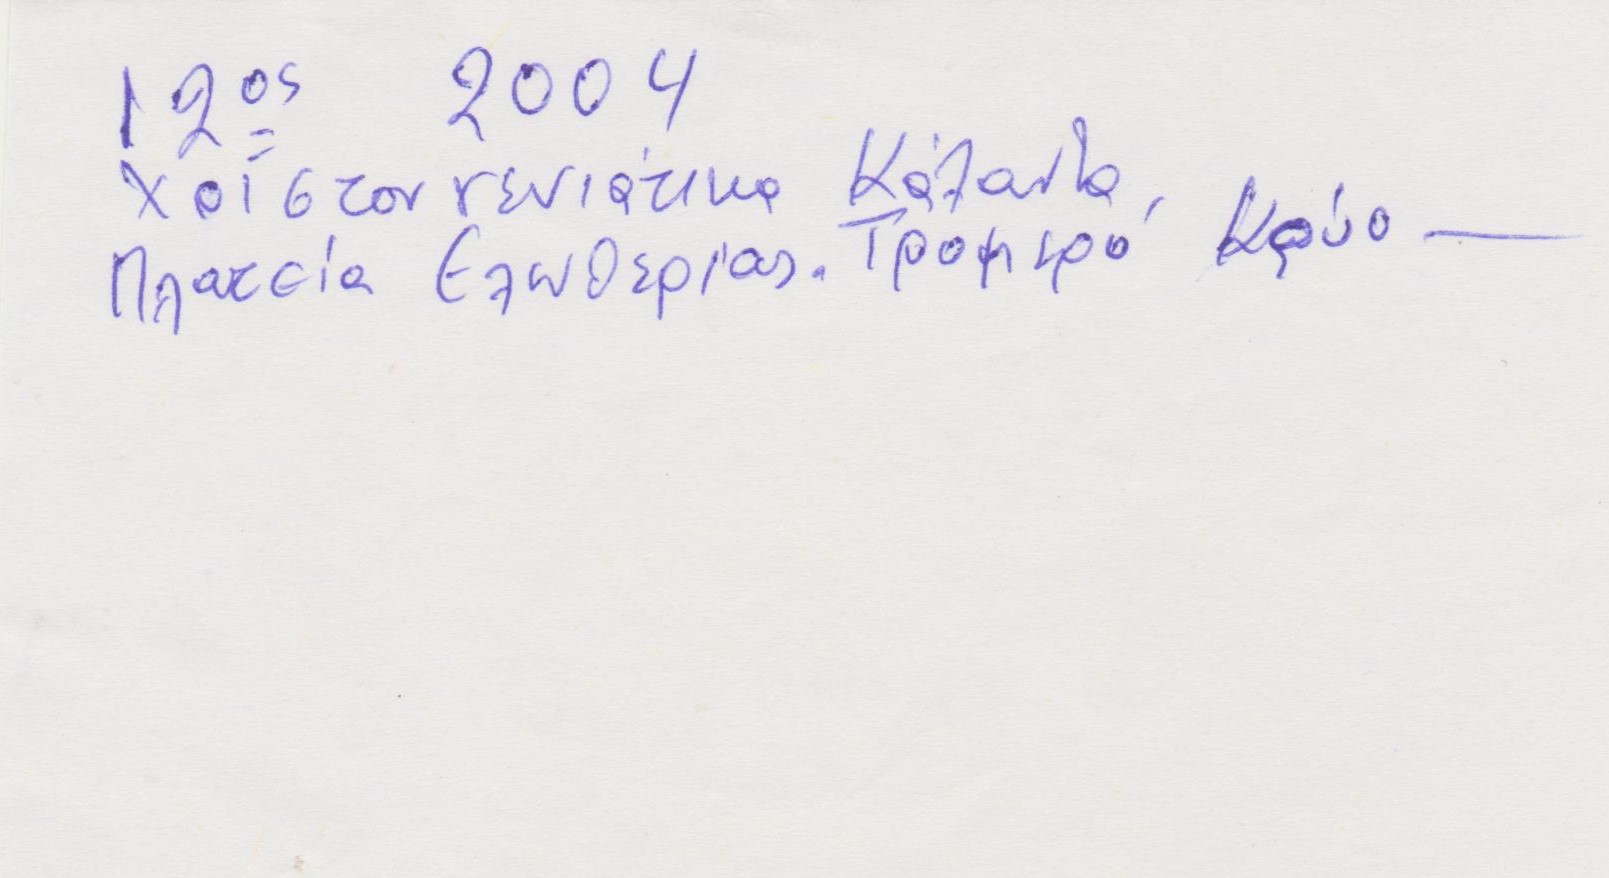 12ος 2004
Χριστουγενιάτικα Κάλαντα,
Πλατεία Ελευθερίας. Τρομερό Κρύο —